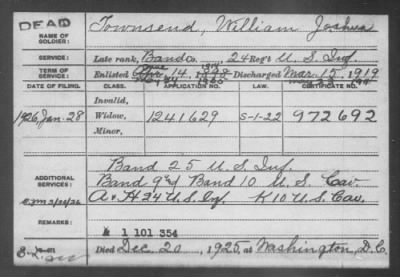 DEAD
NAME OF SOLDIER: Townsend, William Joshua
SERVICE: Late rank, Band Co. 24 Reg't U. S. Inf.
TERM OF SERVICE: Enlisted 14, Discharged Mar. 15, 1919
DATE OF FILING. CLASS. APPLICATION NO. LAW. CERTIFICATE NO.
Invalid,
1926 Jan. 28 Widow, 1241629 S-1-22 972692
Minor,
ADDITIONAL SERVICES: Band 25 U. S. Inf.
Band 9 Band 10 U. S. Cav.
H. 24 U.S. Inf K 10 U.S. Cav.
REMARKS:
1 101 354
Died Dec. 20, 1925, at Washington, D.C.